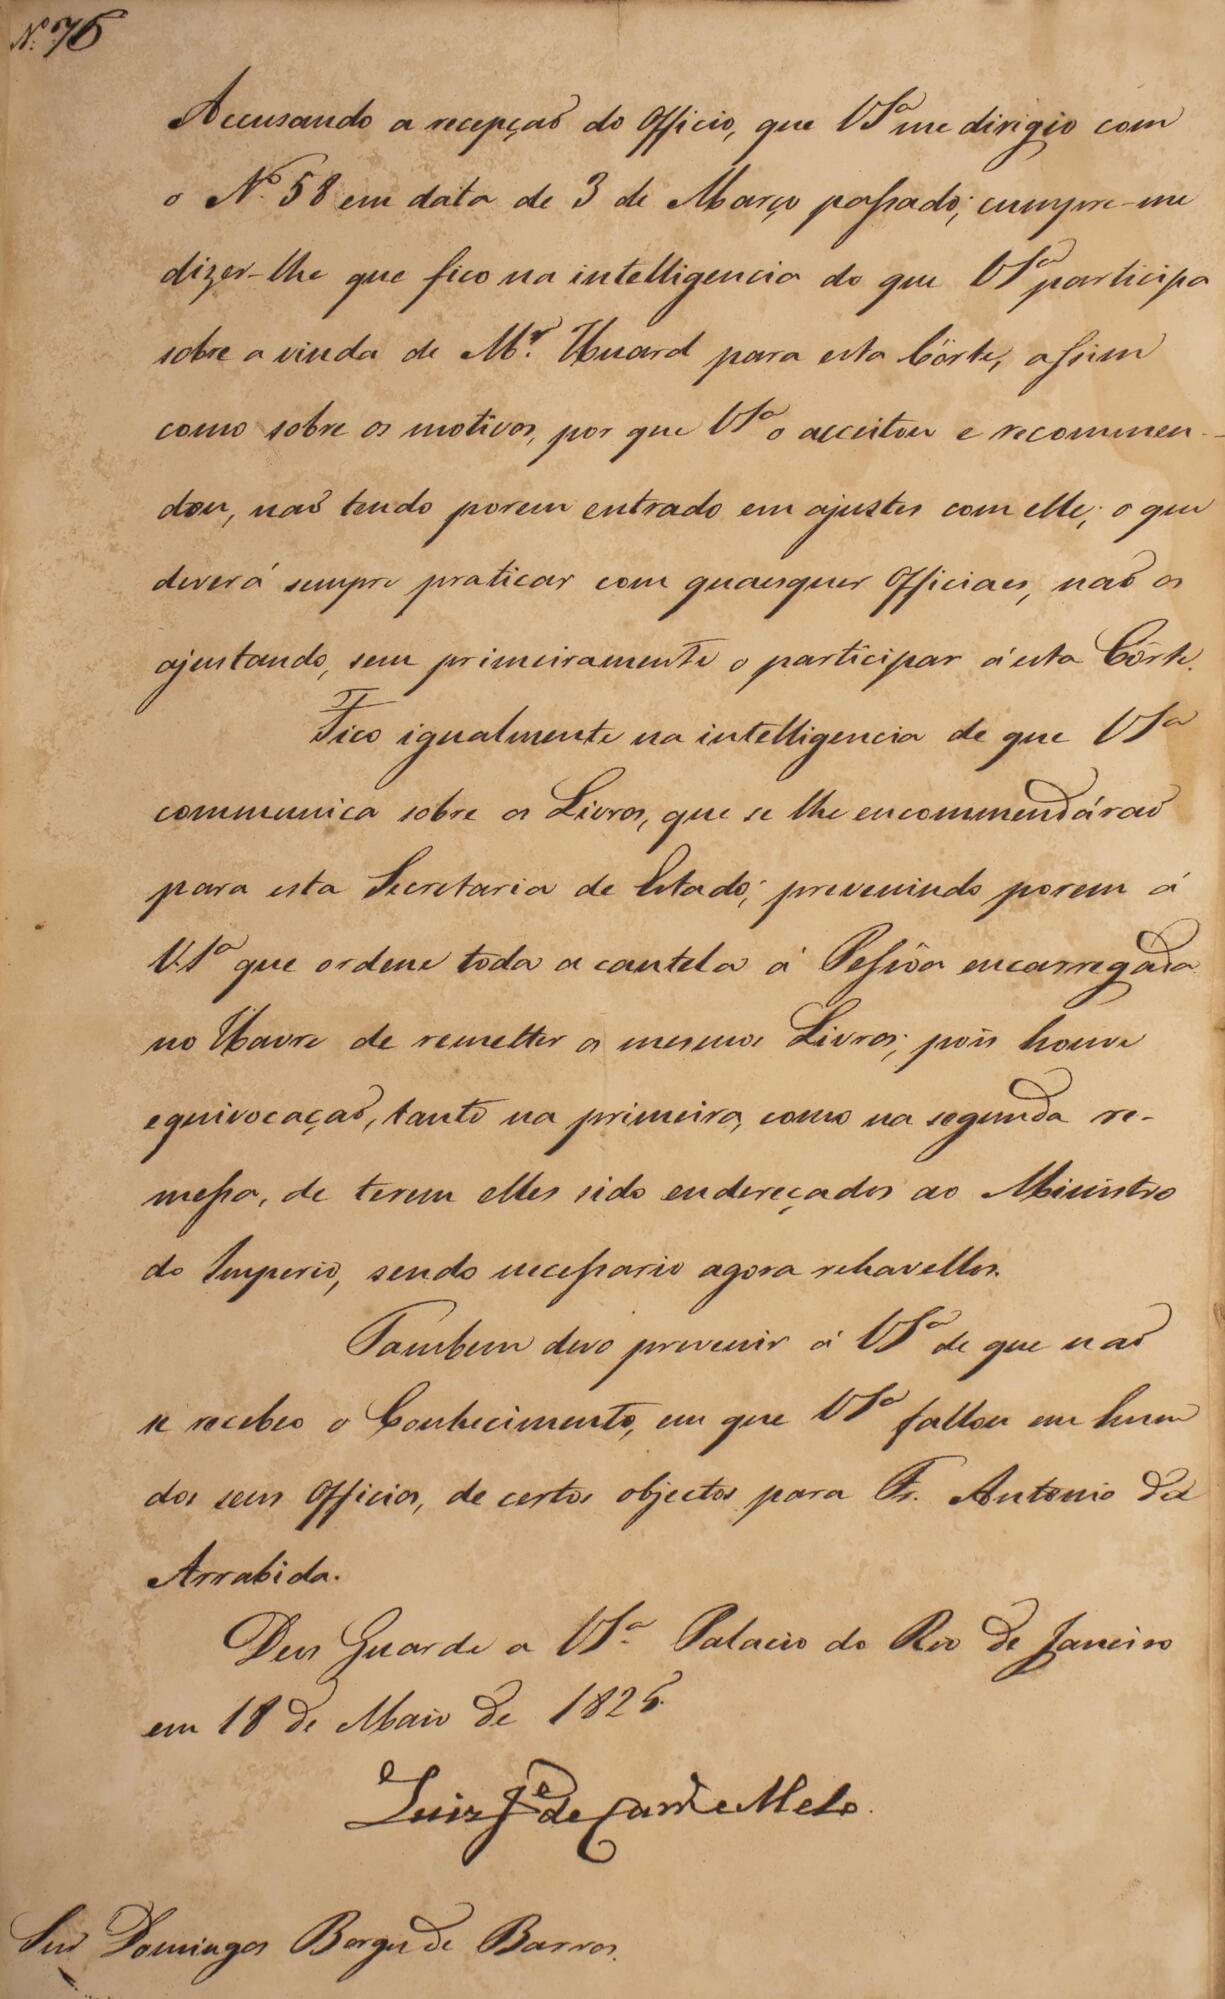 Nº 76
Accusando a recepçaõ do Officio, que VSª me dirigio com
o Nº 58 em data de 3 de Março passado; cumpre-me
dizer-lhe que fico na intelligencia do que VSª participa
sobre a vinda de Mr. Huard para esta Côrte, assim
como sobre os motivos, por que VSª o acceitou e recommen-
dou, naõ tendo porem entrado em ajustes com elle; o que
deverá sempre praticar com quaesquer Officiaes, naõ os
ajustando, sem primeiramente o participar á esta Côrte.
Fico igualmente na intelligencia de que VSª
communica sobre os Livros, que se lhe encommendáraõ
para esta Secretaria de Estado; prevenindo porem á
VSª que ordene toda a cautela á Pessôa encarregada
no Havre de remetter os mesmos Livros; pois houve
equivocaçaõ, tanto na primeira, como na segunda re-
messa, de terem elles sido endereçados ao Ministro
do Imperio, sendo necessario agora rehavellos.
Tambem devo prevenir á VSª de que naõ
se recebeo o Conhecimento, em que VSª fallou em hum
dos seus Officios, de certos objectos para Fr. Antonio da
Arrabida.
Deos Guarde a VSª. Palacio do Rio de Janeiro
em 18 de Maio de 1825.
Luiz Jé de Carvº e Mello.
Snr Domingos Borges de Barros.